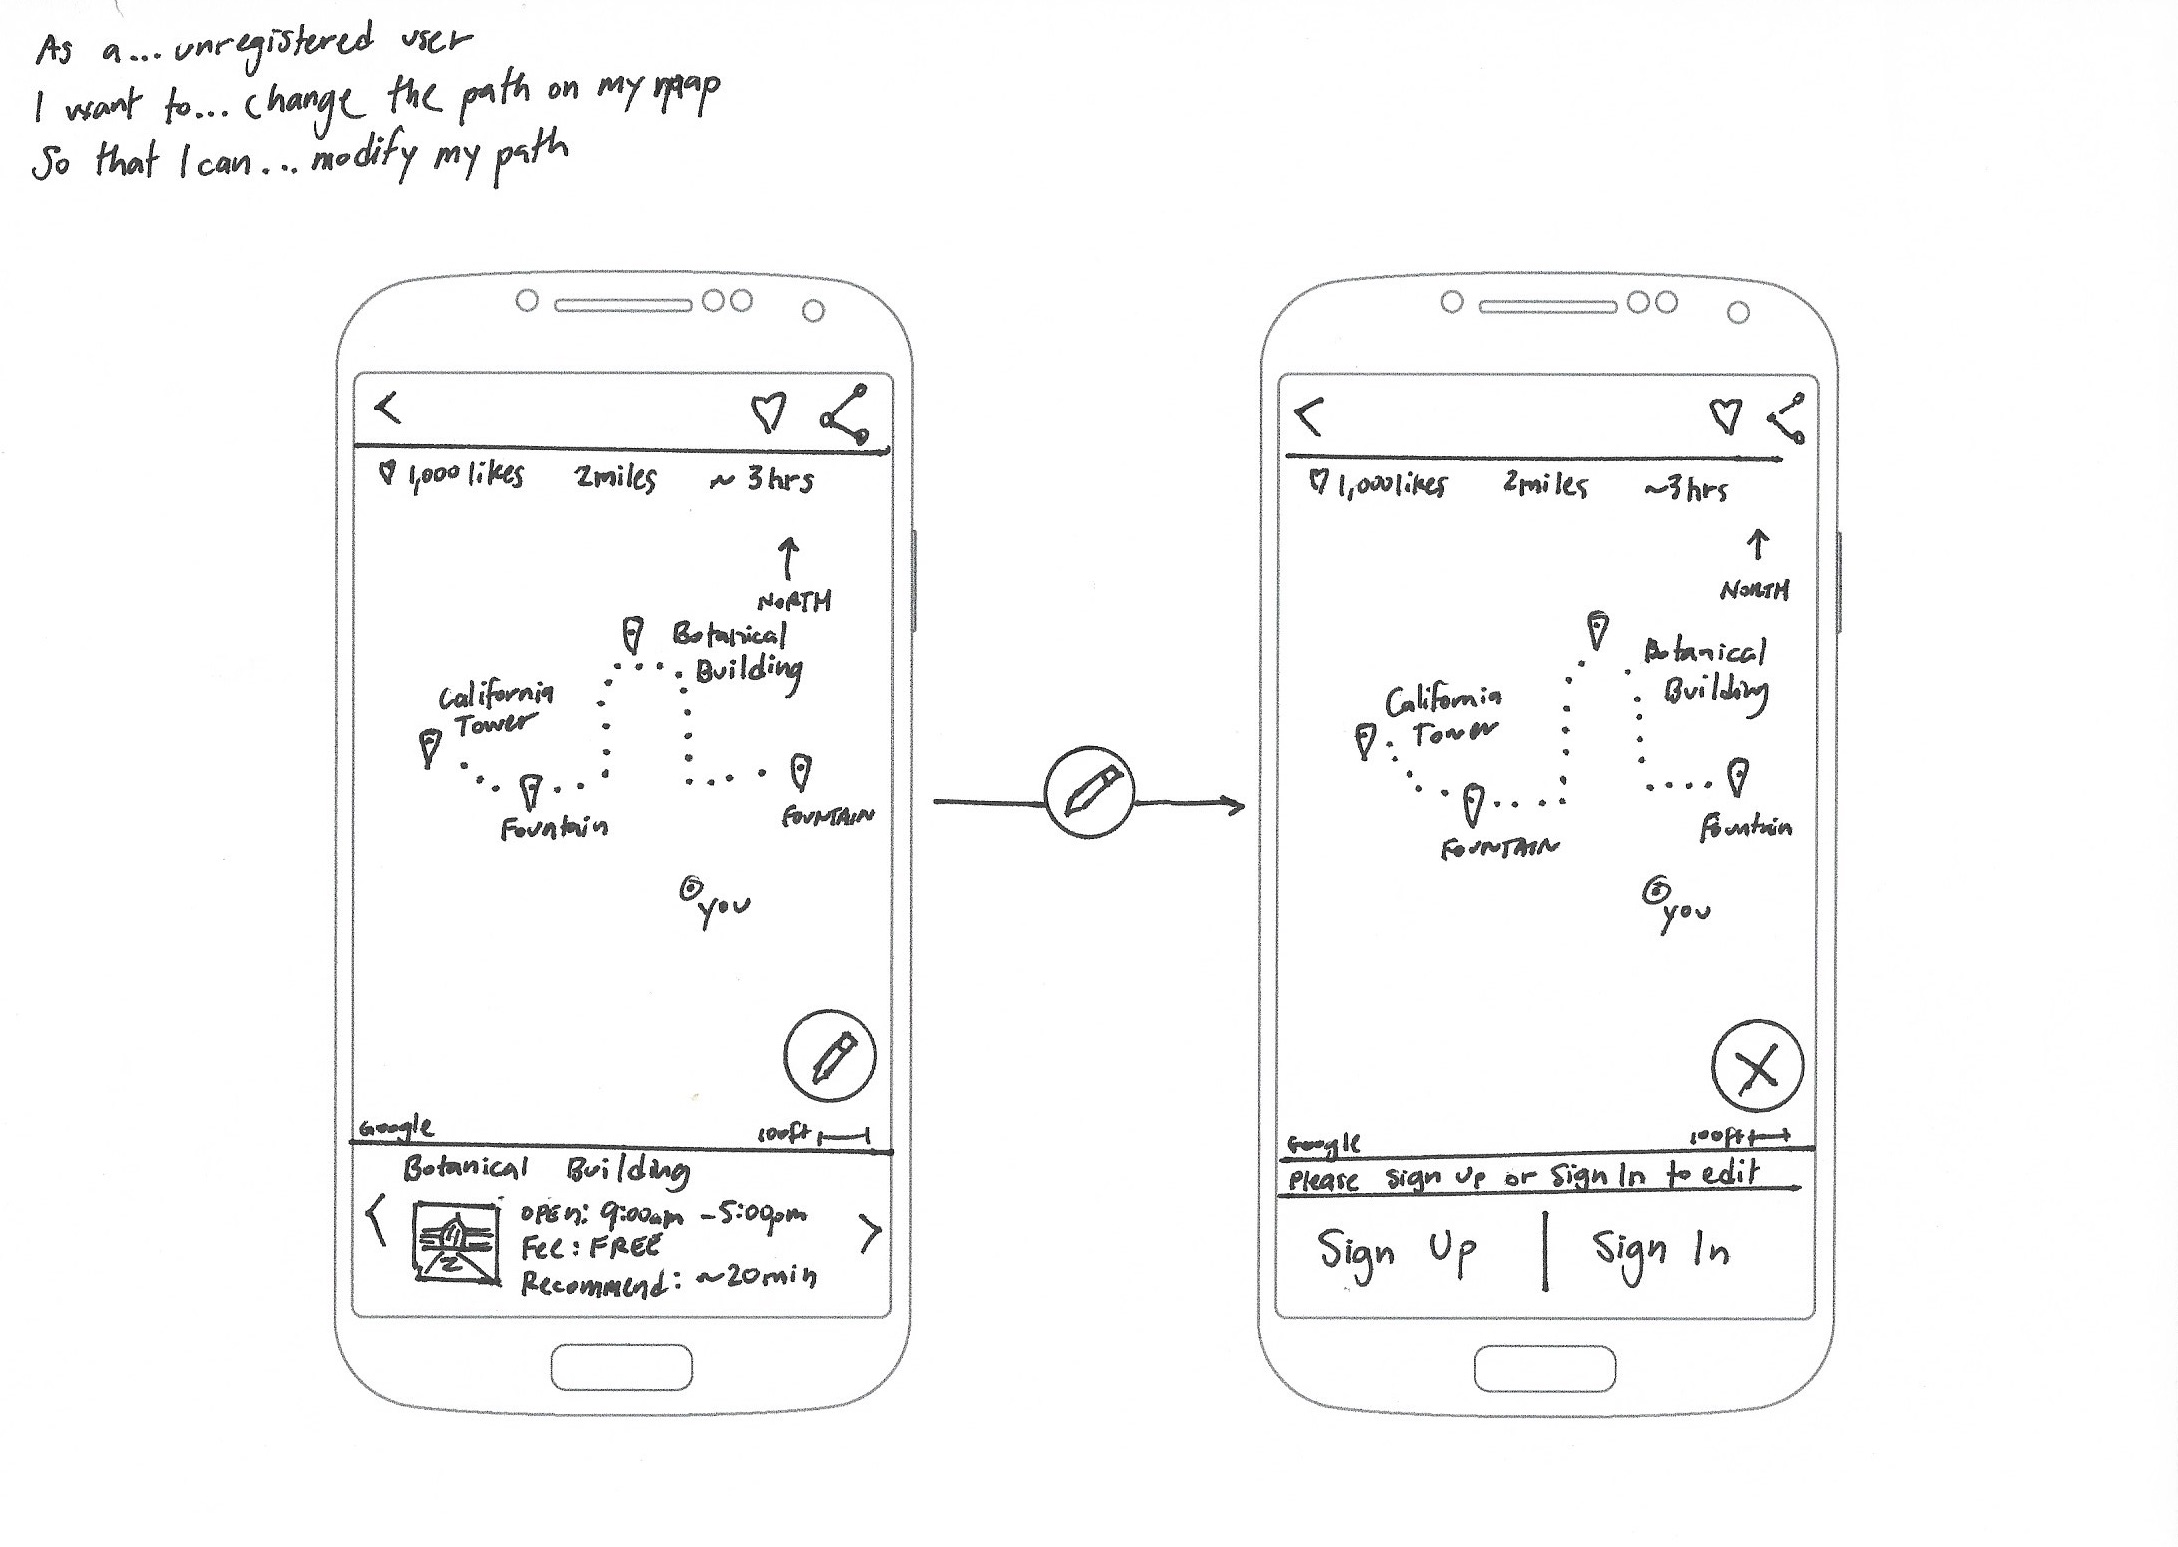 As a... unregistered user
I want to... change the path on my map
So that I can... modify my path
1,000 likes 2miles ~ 3 hrs
NORTH
Botanical
Building
California
Tower
Fountain
FOUNTAIN
you
Google
100ft
Botanical Building
OPEN: 9:00am - 5:00pm
Fee: FREE
Recommend: ~20min
1,000 likes 2miles ~3hrs
NORTH
Botanical
Building
California
Tower
FOUNTAIN
Fountain
you
Google
100ft
Please sign up or Sign In to edit
Sign Up | Sign In